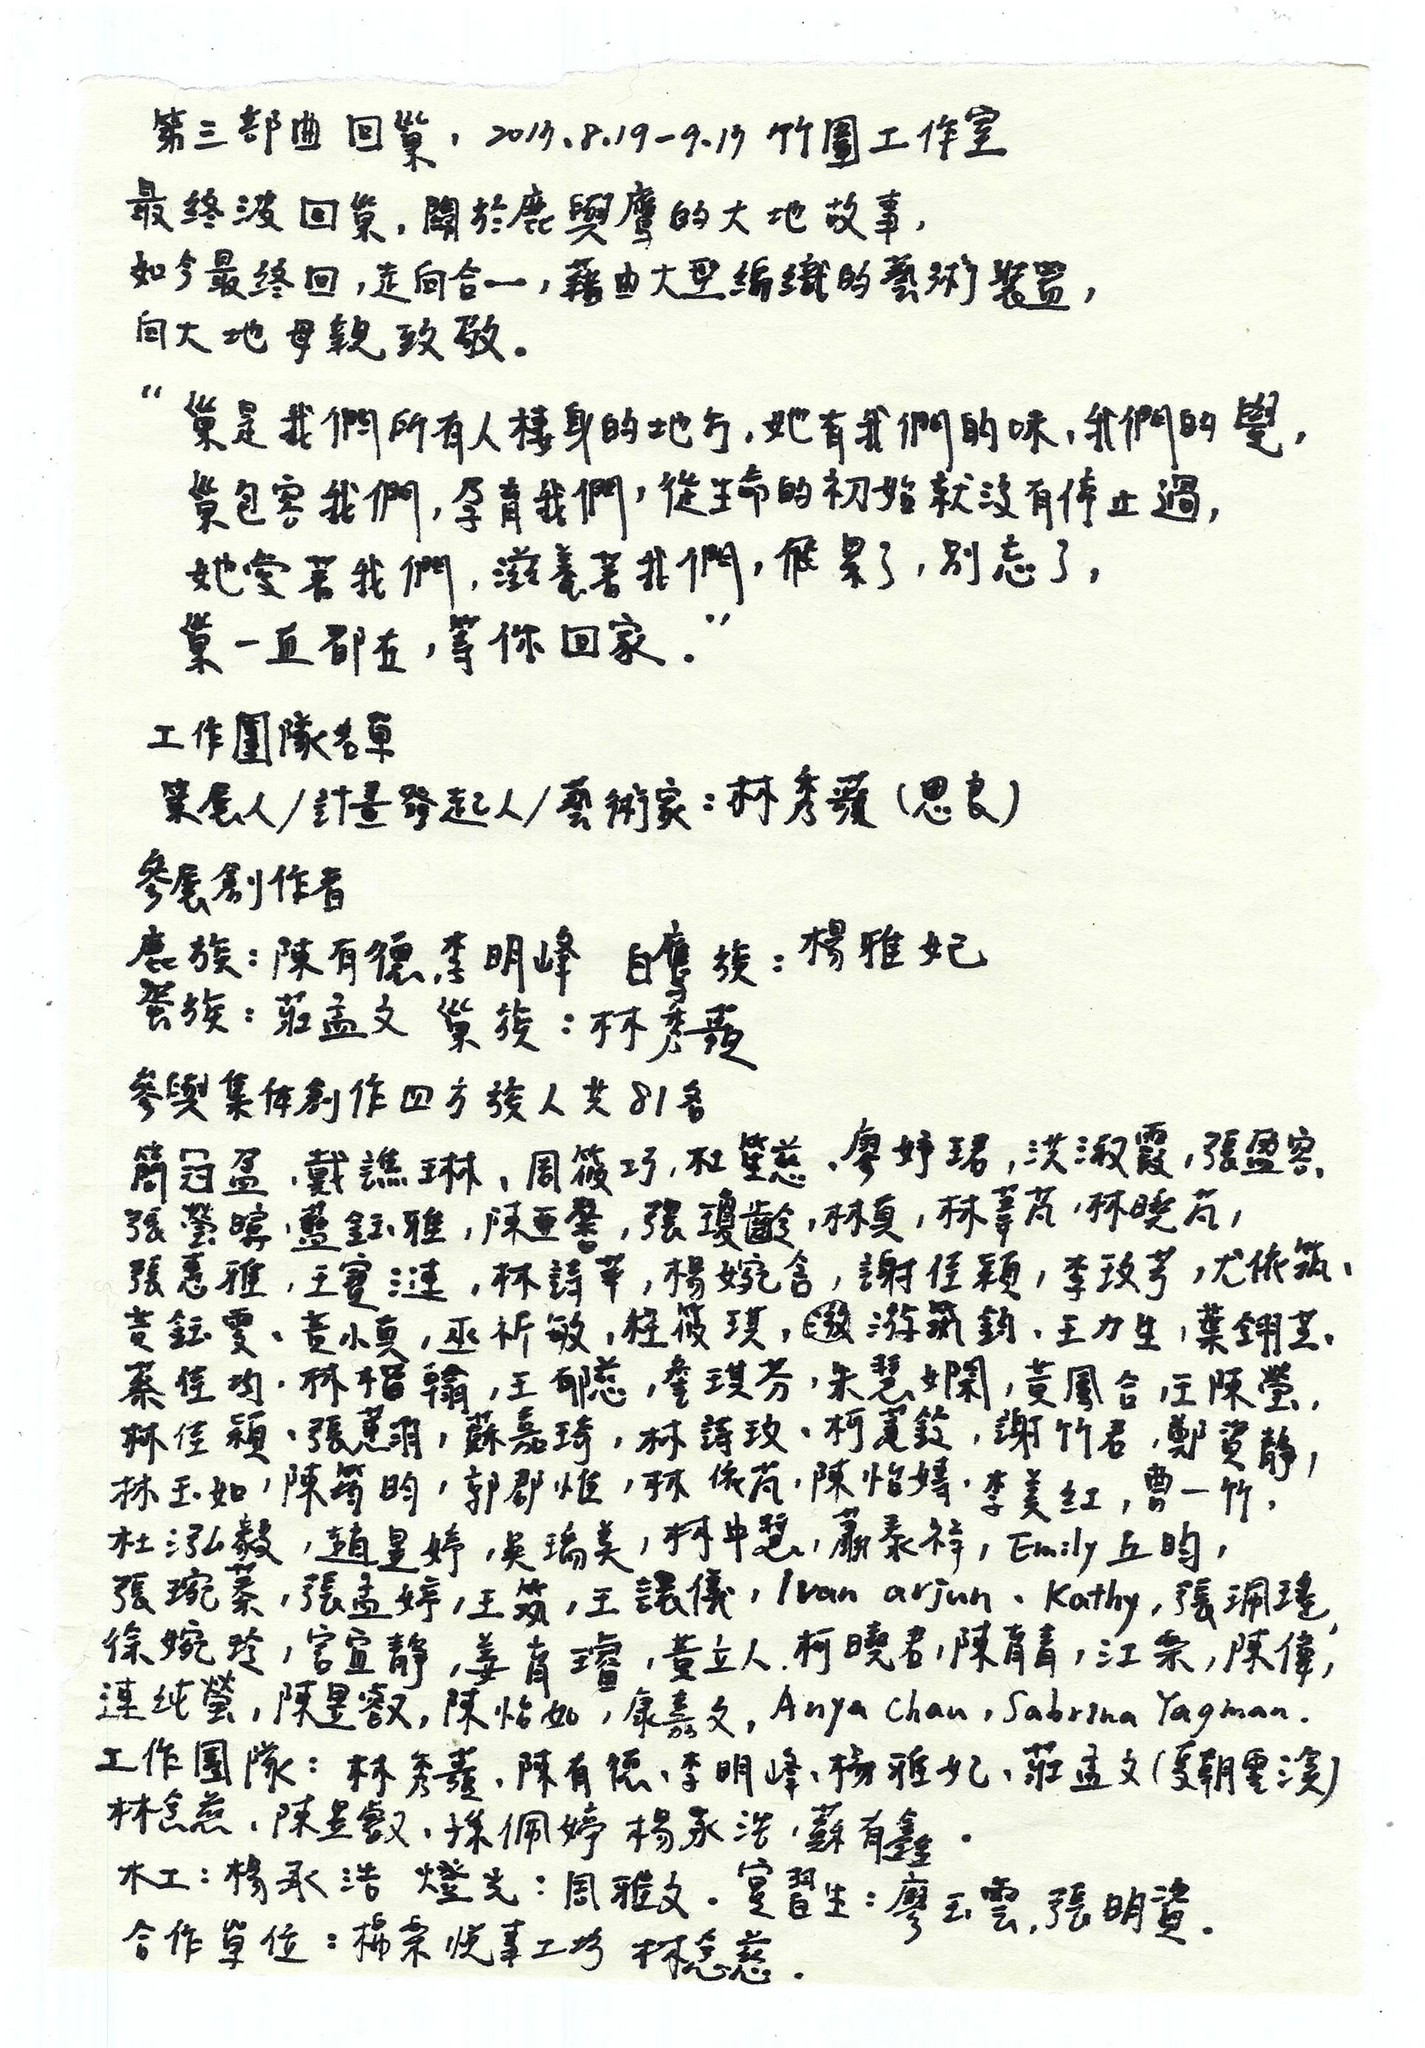 第三部曲 回巢，2013.8.19-9.13 竹圍工作室
最終波回巢，關於鹿與鷹的大地故事，
如今最終回，走向合一，藉由大型編織的藝術裝置，
向大地母親致敬。
“巢是我們所有人棲身的地方，她有我們的味，我們的覺，
巢包容我們，孕育我們，從生命的初始就沒有停止過，
她愛著我們，滋養著我們，飛累了，別忘了，
巢一直都在，等你回家。”
工作團隊名單
策展人/計畫發起人/藝術家：林秀蘋（思良）
參展創作者
鹿族：陳有德、李明峰 白鷹族：楊雅妃
蛋族：莊孟文 巢族：林秀
參與集体創作四方族人共81名
簡冠盈、戴譙琳、周筱巧，杜笙慈、廖妤珺，洪淑霞，張盈容、
張瑩 藍鈺雅，陳亞馨，張瓊齡，林真，林葦芃，林曉芃，
張惠雅，王寔漣，林詩苹，楊婉含，謝佳穎，李玫芳，尤依筑、
黃鈺雯、黃小真，巫祈敏，筱琪，游 鈞、王力生，葉翎芝、
蔡佳均，林 翰，王郁慈，詹琪芬，朱慧嫻，黃鳳合，王陳瑩，
林佳穎、張蕙，蘇嘉琦，林詩玫、柯蕙鈺，謝竹君，鄭資靜，
林玉如，陳筠昀，郭郡惟，林依芃，陳怡嬙，李美紅，曹一竹，
杜泓毅，趙昱婷，吳瑞美，林中慧，蕭泰祥，Emily 丘昀，
張琬蓁，張孟婷，王筑，王讌儀，Ivan arjun、Kathy，張珮瑄，
徐婉玲，宮宜靜，姜育璿，黃立人，柯曉君，陳育青，江柔，陳偉，
連純瑩，陳昱叡，陳怡如，康嘉文，Anya Chau，Sabrina Yagman.
工作團隊：林秀、陳有德、李明峰、楊雅妃、莊孟文（夏朝雲溪）
林念慈、陳昱叡、孫佩婷 楊承浩，蘇有鑫。
木工：楊承浩 燈光：周雅文。寔習生：廖玉雲，張明資。
合作單位：楊柔悅事工坊 林念慈。